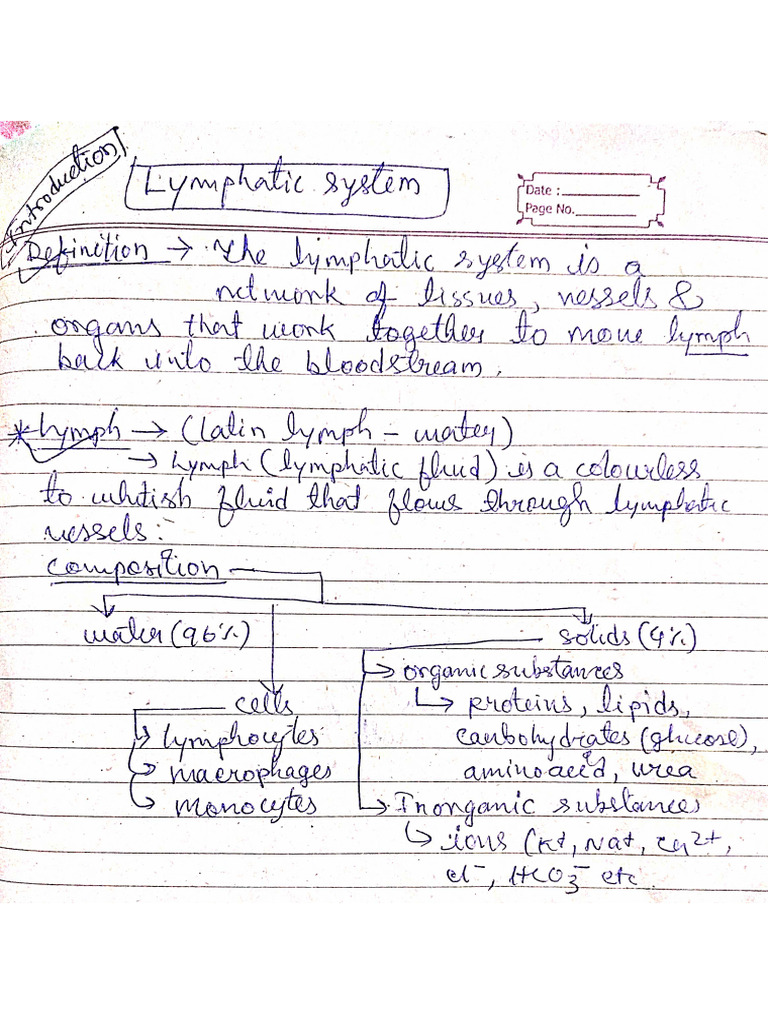 Introduction
Lymphatic system
Date :
Page No.
Definition → The lymphatic system is a
network of tissues, vessels &
organs that work together to move lymph
back into the bloodstream.
* Lymph → (Latin lymph - water)
→ Lymph (lymphatic fluid) is a colourless
to whitish fluid that flows through lymphatic
vessels:-
Composition
water (96%)
solids (4%)
→ organic substances
cells
↳ proteins, lipids,
↳ lymphocytes
carbohydrates (glucose),
↳ macrophages
aminoacid, urea
↳ monocytes
→ Inorganic substances
↳ ions (K+, Na+, Ca2+,
Cl-, HCO3- etc